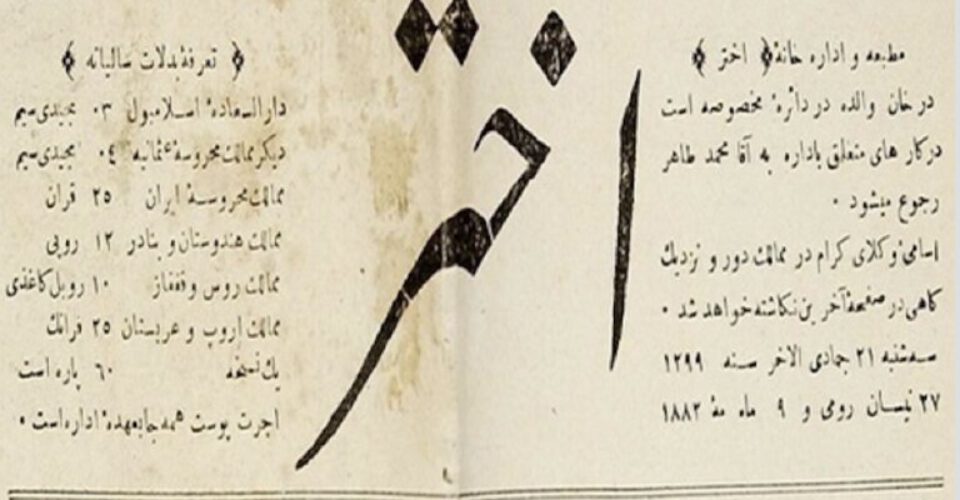 مطبعه و اداره خانهٔ ﴿ اختر ﴾
در خان والده در دائرهٔ مخصوصه است
درکار های متعلق باداره به آقا محمد طاهر
رجوع میشود ٠
اسامئ وکلای کرام در ممالك دور و نزدیك
کاهی در صفحهٔ آخرین نکاشته خواهد شد ٠
سه شنبه ٢١ جمادی الاخر سنه ١٢٩٩
٢٧ نیسان رومی و ٩ ماه مهٔ ١٨٨٢
اختر
﴿ تعرفهٔ بدلات سالیانه ﴾
دار السعادهٔ اسلامبول ٠٣ مجیدی سیم
دیکر ممالك محروسهٔ عثمانیه ٠٤ مجیدی سیم
ممالك محروسهٔ ایران ٢٥ قران
ممالك هندوستان و بنادر ١٢ روپی
ممالك روس و قفقاز ١٠ روبل کاغذی
ممالك اروپ و عربستان ٢٥ فرانك
یك نسخه ٦٠ پاره است
اجرت پوست همه جا بعهدهٔ اداره است ٠